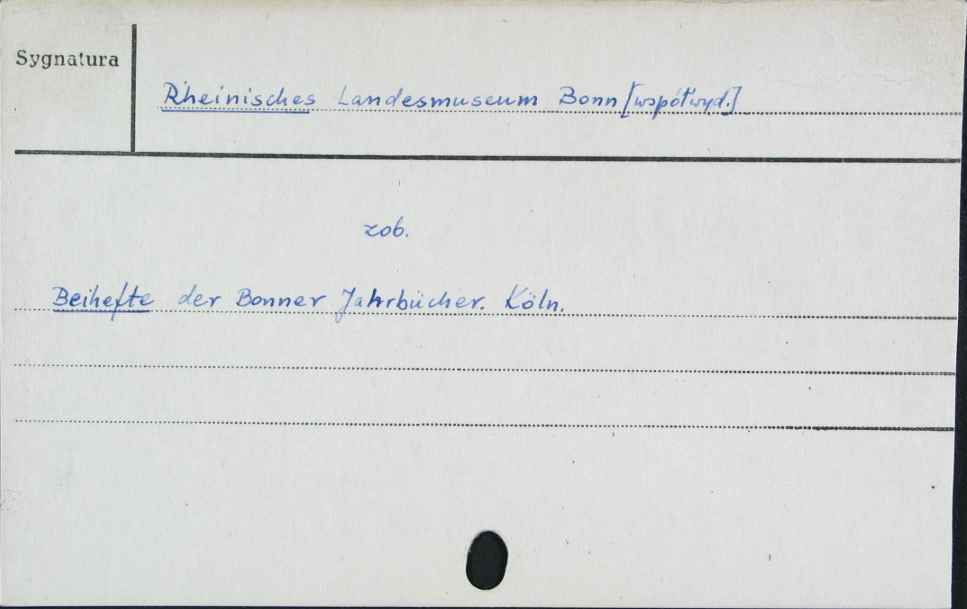 Sygnatura
Rheinisches Landesmuseum Bonn [współwyd.]
zob.
Beihefte der Bonner Jahrbücher. Köln.